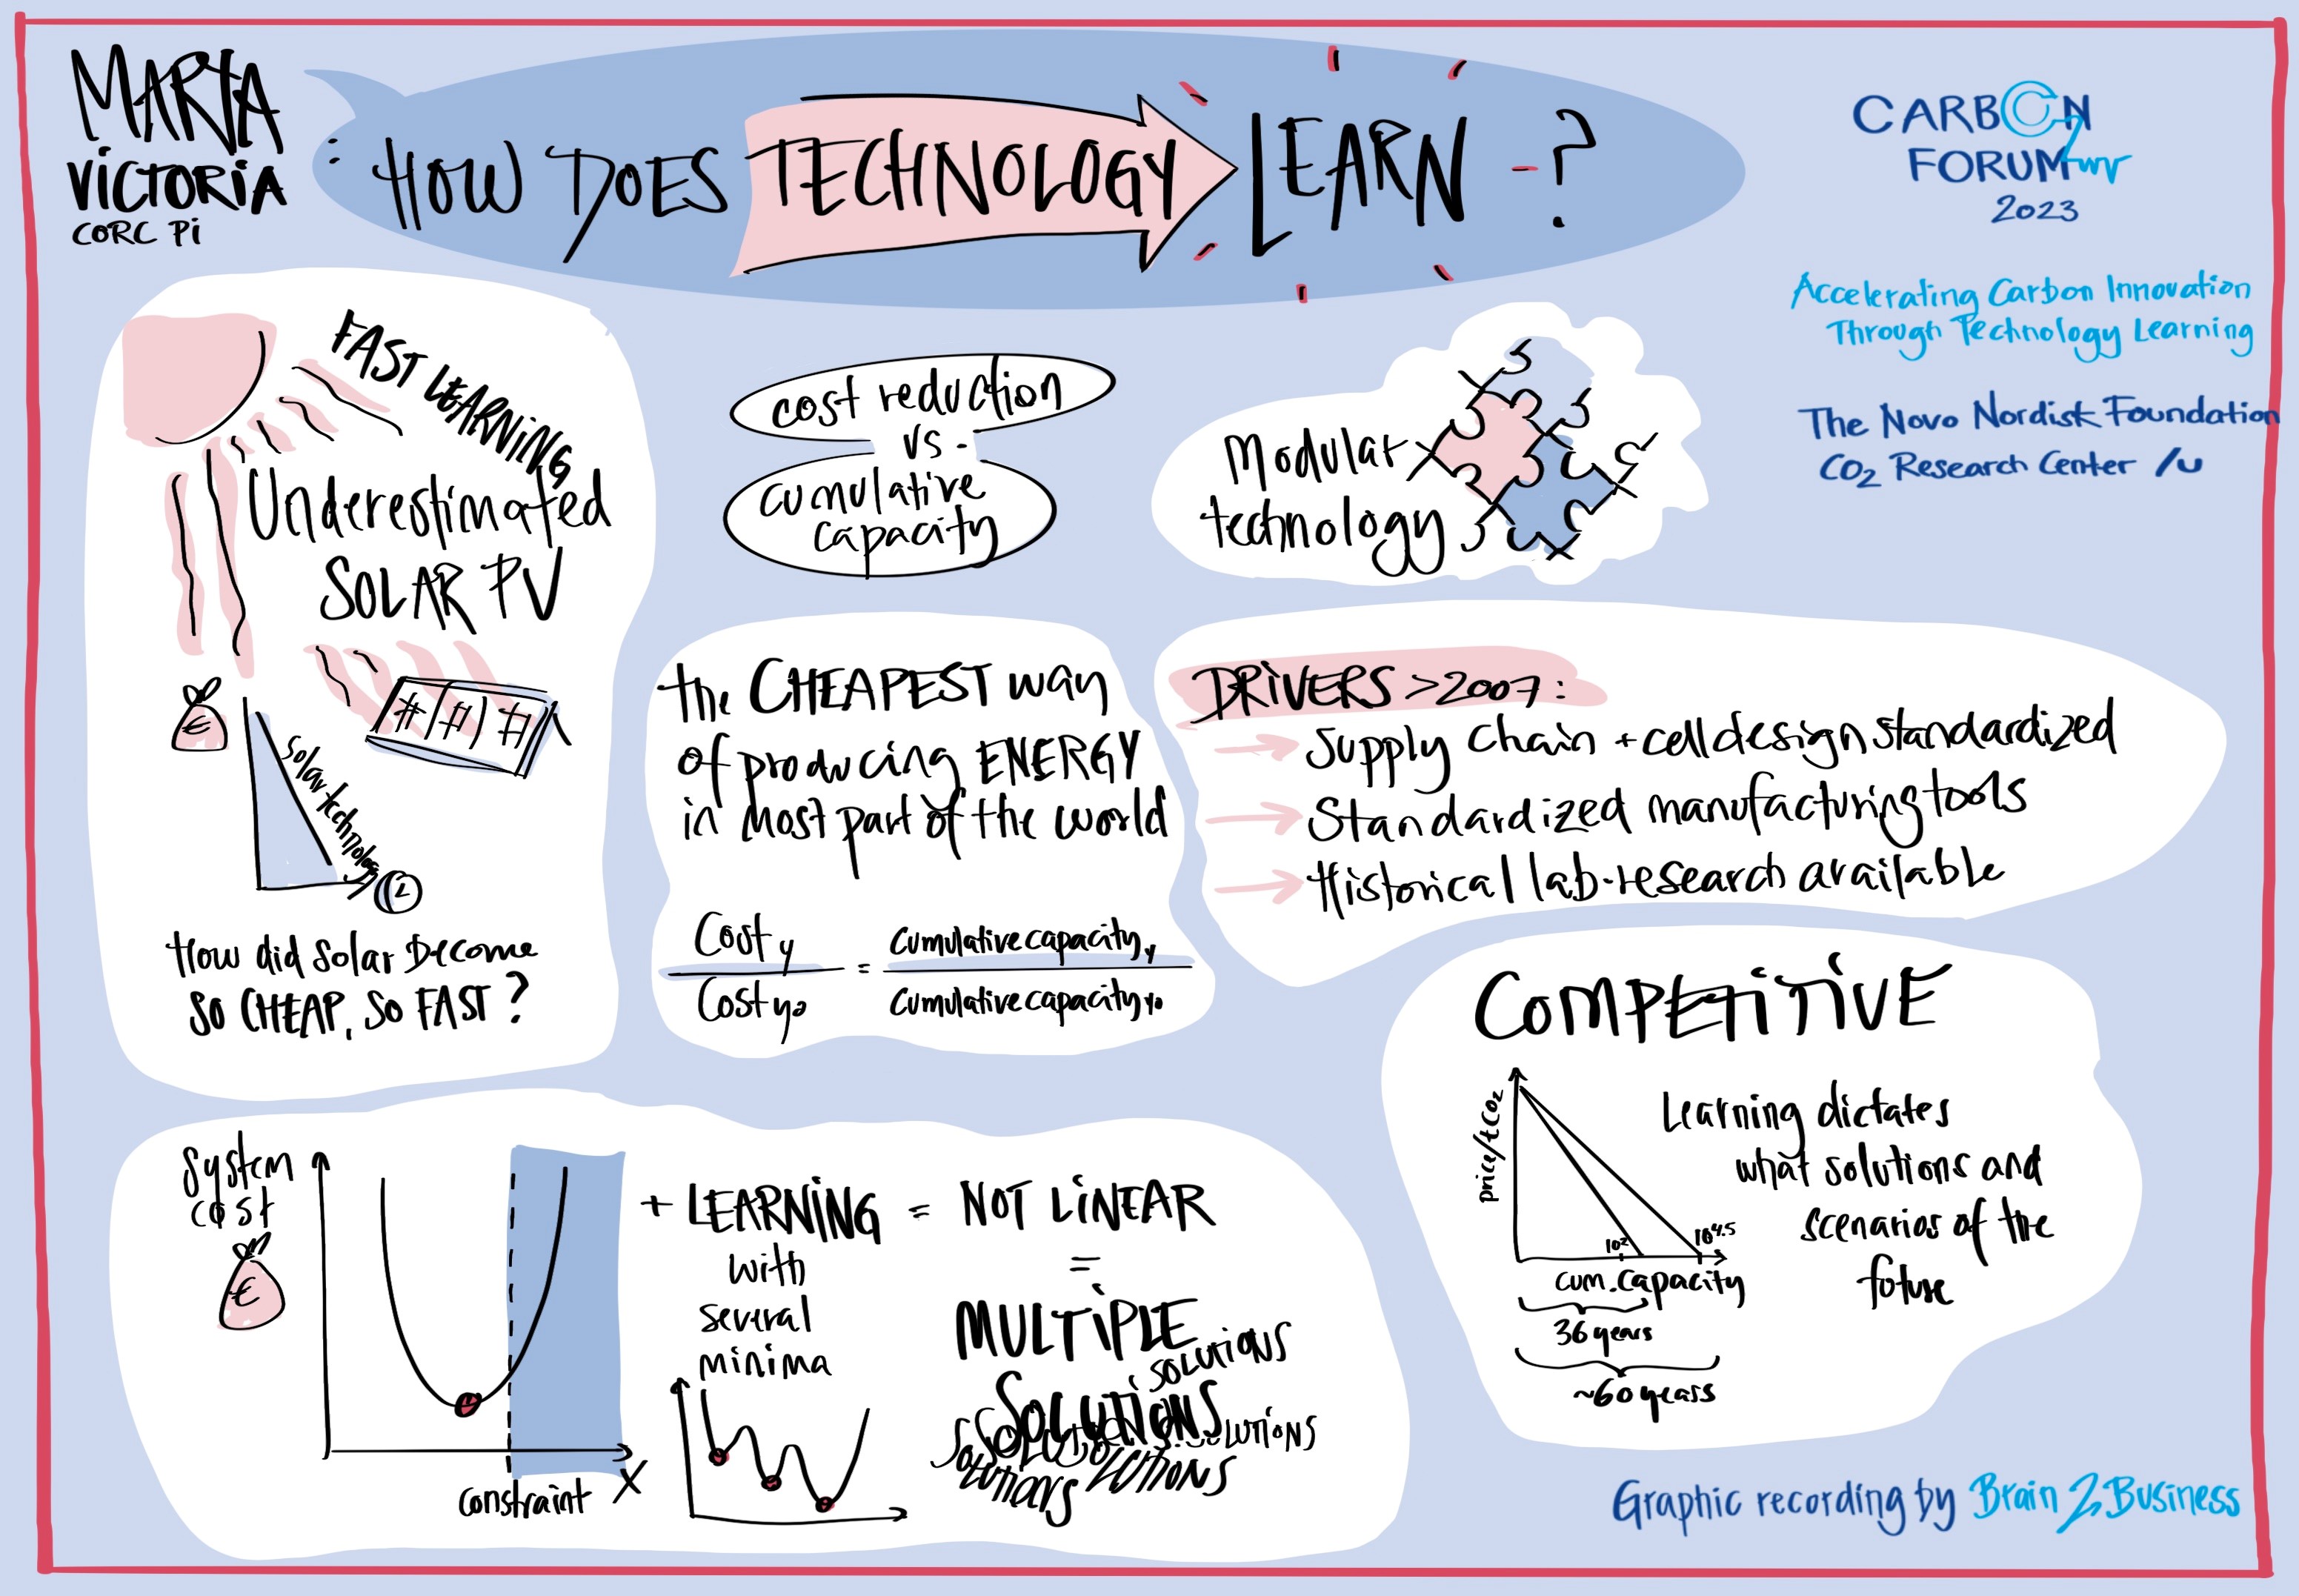 MARIA
VICTORIA
CORC Pi
: HOW DOES TECHNOLOGY LEARN - ?
CARBON
FORUM
2023
Accelerating Carbon Innovation
Through Technology Learning
The Novo Nordisk Foundation
CO2 Research Center
FAST LEARNING
Underestimated
SOLAR PV
€
Solar technology
How did solar become
SO CHEAP, SO FAST?
cost reduction
vs.
cumulative
capacity
Modular
technology
the CHEAPEST way
of producing ENERGY
in most part of the world
Cost y = Cumulative capacity y
Cost y0 Cumulative capacity y0
DRIVERS >2007:
Supply chain + cell design standardized
Standardized manufacturing tools
Historical lab-research available
COMPETITIVE
price/tCO2
10² 10⁴·⁵
cum. capacity
36 years
~60 years
Learning dictates
what solutions and
scenarios of the
future
System
cost
€
constraint
X
+ LEARNING = NOT LINEAR
with
several
minima
=
MULTIPLE
SOLUTIONS
SOLUTIONS
SOLUTIONS
Graphic recording by Brain2Business